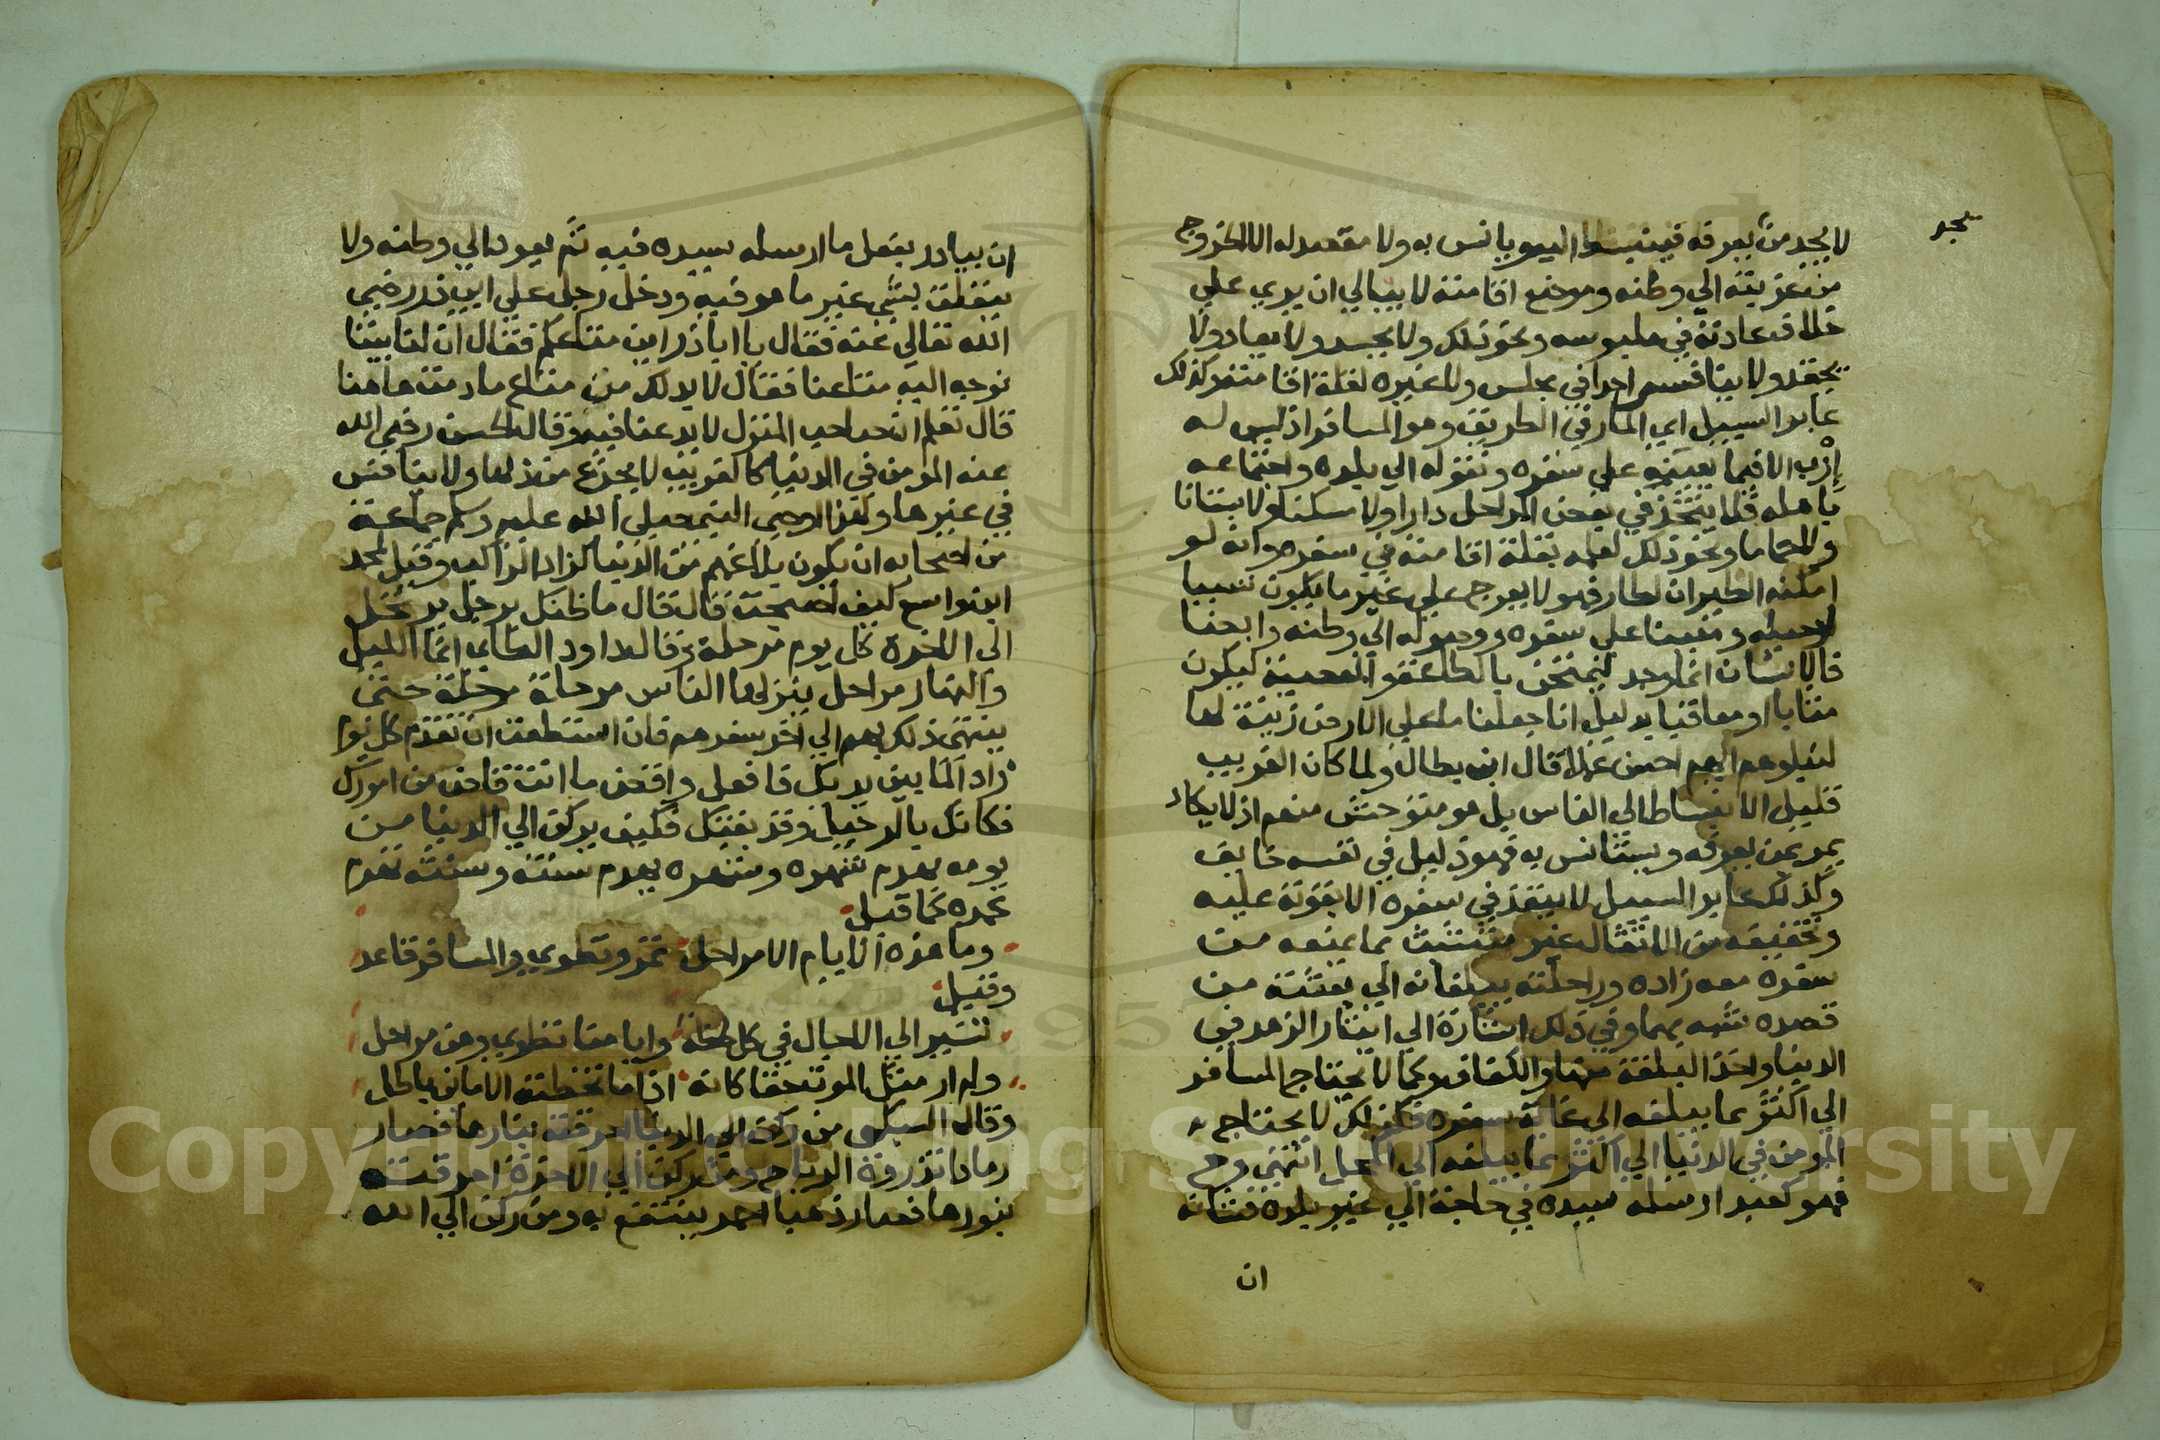 يجد
لا يجد من يعرفه فينبسط اليه ويانس به ولا مقصد له الا الخروج
من غربته الي وطنه وموضع اقامته لا يبالي ان يري علي
خلاف عادته في ملبوسه ونحو ذلك ولا يحسد ولا يعاد ولا
يحقد ولا ينافس احدا في مجلس ولا غيره لقلة اقامته وكذلك
عابر السبيل اي المار في الطريق وهو المسافر اذ ليس له
إرب الا فيما يعينه علي سفره ونزوله الي بلده واجتماعه
باهله فلا يتخذ في بعض المراحل دارا ولا مسكنا ولا بستانا
ولا حماما ونحو ذلك لعلمه بقلة اقامته في سفره وانه لو
امكنه الطيران لطار فهو لا يعرج علي غير ما يكون سببا
لوصله ومعينا علي سفره ووصوله الي وطنه وايضا
فالانسان انما وجد ليمتحن بالطاعة والمعصية ليكون
مثابا او معاقبا بدليل انا جعلنا ما علي الارض زينة لها
لنبلوهم ايهم احسن عملا قال ابن بطال ولما كان الغريب
قليل الانبساط الي الناس بل هو متوحش منهم اذ لا يكاد
يمر بمن يعرفه ويستانس به فهو ذليل في نفسه خايف
وكذلك عابر السبيل لا ينفذ في سفره الا بقوته عليه
وتخفيفه من الاثقال غير متشبث بما يمنعه من
سفره معه زاده وراحلته يبلغانه الي بغيته من
قصده شبهه بهما وفي ذلك اشارة الي ايثار الزهد في
الدنيا واخذ البلغة منها والكفاف فكما لا يحتاج المسافر
الي اكثر مما يبلغه الي غاية سفره فكذلك لا يحتاج
المومن في الدنيا الي اكثر مما يبلغه الي المحل انتهي وح
فهو كعبد ارسله سيده في حاجة الي غير بلده فشانه
ان
ان يبادر بفعل ما ارسله سيده فيه ثم يعود الي وطنه ولا
يتعلق بشي غير ما هو فيه ودخل رجل علي ابي ذر رضي
الله تعالي عنه فقال يا ابا ذر اين متاعكم فقال ان لنا بيتا
نوجه اليه متاعنا فقال لا بد لك من متاع ما دمت هاهنا
قال نعلم ان صاحب المنزل لا يدعنا فيه وقال الحسن رضي الله
عنه المومن في الدنيا كالغريب لا يجزع من ذلها ولا ينافس
في عزها ولهذا اوصي النبي صلي الله عليه وسلم جماعة
من اصحابه ان يكون بلاغهم من الدنيا كزاد الراكب وقيل لمحمد
ابن واسع كيف اصبحت قال قال ما ظنك برجل يرتحل
الي الاخرة كل يوم مرحلة وقال داود الطاي انما الليل
والنهار مراحل ينزلها الناس مرحلة مرحلة حتي
ينتهي ذلك بهم الي اخر سفرهم فان استطعت ان تقدم كل يوم
زاد لما بين يديك فافعل واقض ما انت قاض من امورك
فكانك بالرحيل وقد بغتك فكيف يركن الي الدنيا من
يومه يهدم شهره وشهره يهدم سنته وسنته تهدم
عمره كما قيل
وما هذه الايام الا مراحل تمر وتطوي والمسافر قاعد
وقيل
نسير الي الاجال في كل لحظة وايامنا تطوي وهن مراحل
ولم ار مثل الموت حقا كانه اذا ما تخطته الاماني باطل
وقال السبكي من ركن الي الدنيا احرقته بنارها فصار
رمادا تذروه الرياح ومن ركن الي الاخرة احرقته
بنورها فصار ذهبا احمر ينتفع به ومن ركن الي الله
Copyright © King Saud University
1957